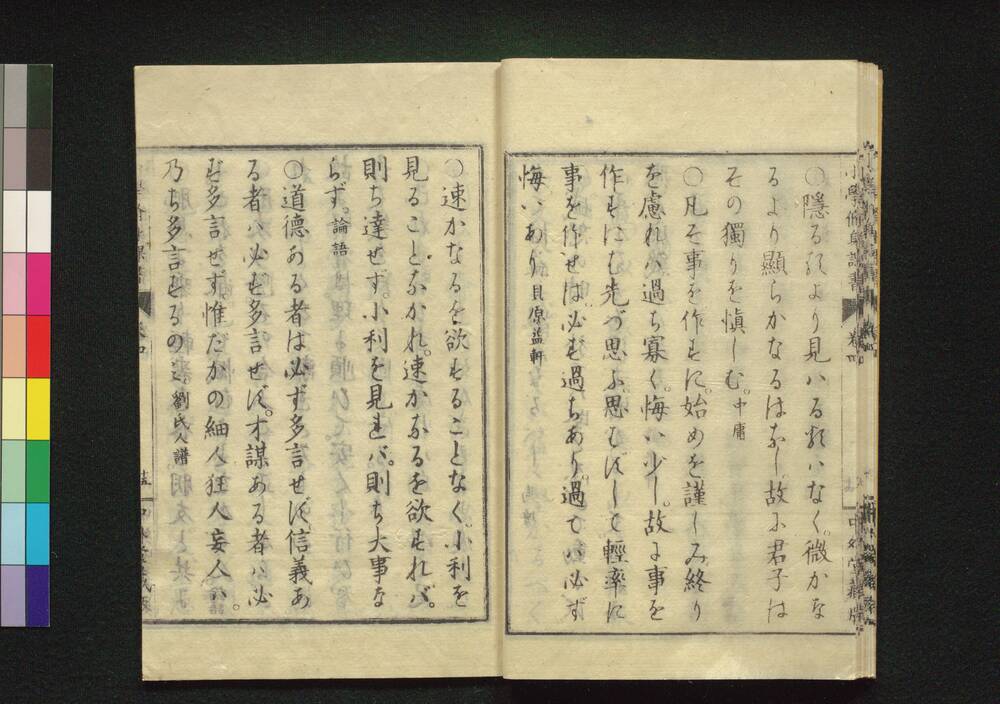 〇隱るゝより見ハるゝハなく。微かな
るより顯らかなるはなし。故に君子は
その獨りを愼しむ。中庸
〇凡そ事を作すに。始めを謹しみ終り
を慮れバ過ち寡く。悔い少し。故に事を
作すにむ先づ思ふ。思むずして輕率に
事を作せば。必ず過ちあり。過てバ必ず
悔いあり 貝原益軒
〇速かなるを欲することなく。小利を
見ることなかれ。速かなるを欲すれバ。
則ち達せず。小利を見れバ。則ち大事な
らず。論語
〇道德ある者は必ず多言せず。信義あ
る者ハ必ず多言せず。才謀ある者ハ必
ず多言せず。惟だかの細人狂人妄人ハ。
乃ち多言するのミ 劉氏人譜
小學脩身訓 卷四